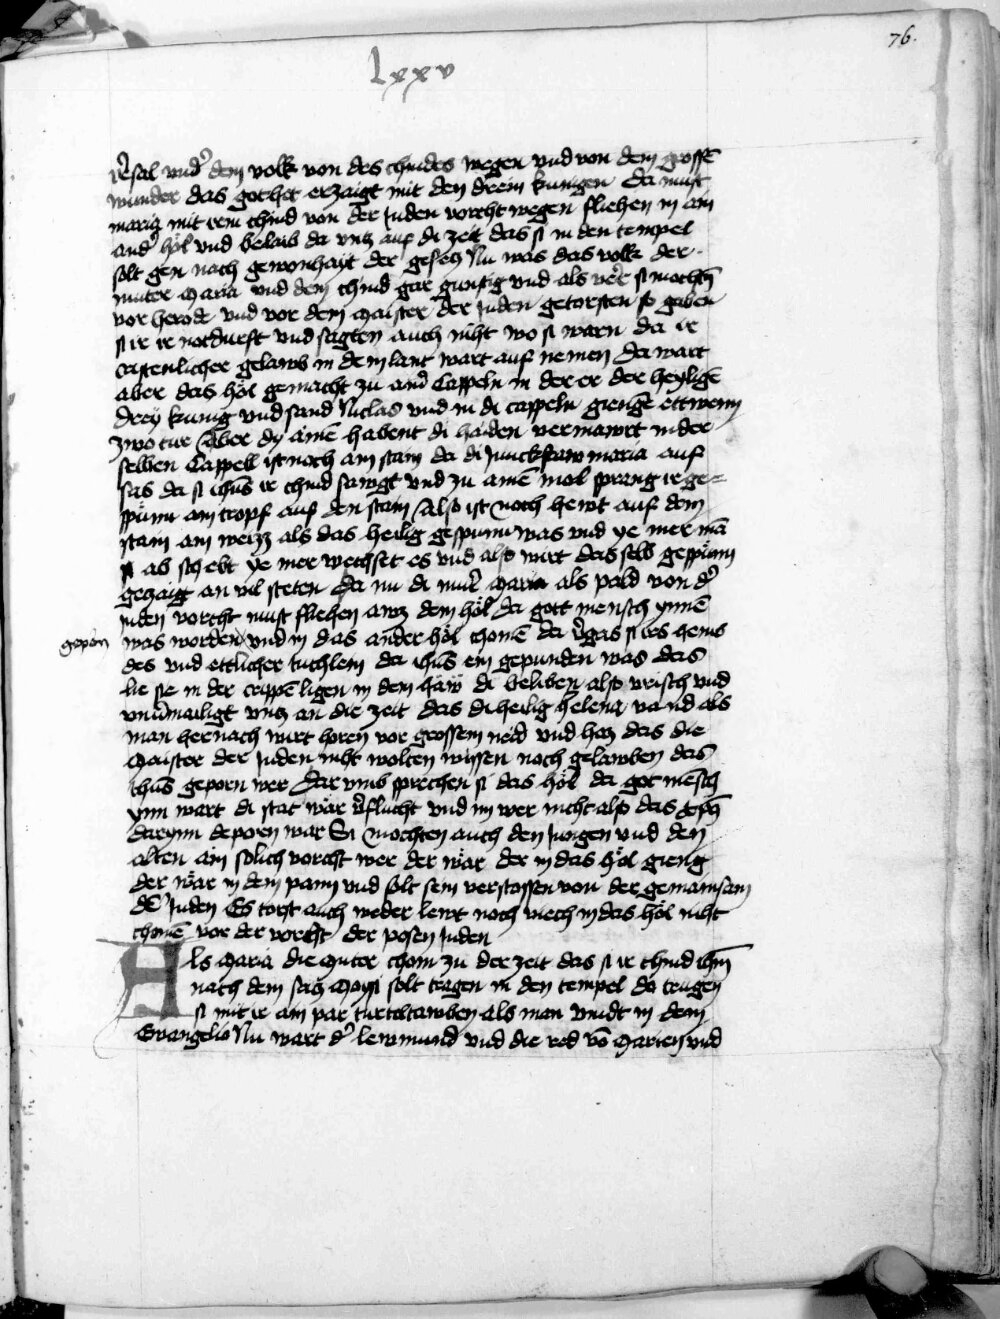 76.
Lxxv
vn̄ sal vnd' dem volk von des chindes wegen vnd von dem grossē
wunder das got het erzaigt mit den drein kunigen Da must
maria mit irem chind von der Juden vorcht wegen fliehen in ain
and' höl vnd belaib da vntz auf di zeit das si in den tempel
solt gen nach gewonhait der gesetz Nu was das volk der
muter Maria vnd dem chind gar gunstig vnd als ver si mochtn̄
vor herode vnd vor den Maister der Juden getorsten so gaben
si ir ir notdurft vnd sagten auch niht wo si waren da ir
cristenlicher gelawb in dem lant wart auf nemen Da wart
aber das höl gemacht zu ain' Cappeln in der er der heyligē
drey kunig vnd sand Niclas vnd in di cappeln giengē ettwenn
zwo tür Aber dy ainē habent di haiden vermawrt in der
selben Cappell ist noch ain stain da di Junckfraw maria auf
sas da si ihūs ir chind sawgt vnd zu ainē mol sprang ir ge=
spünn ain tropf auf den stain Also ist noch hewt auf dem
stain ain weizz als das heilig gespunn was vnd ye mer mā
ab schebt ye mer wechset es vnd also wirt das selb gespünn
gezaigt an vil steten Da nu di mut' Maria als pald von d'
iuden vorcht must fliehen awz dem höl da gott mensch ynnē
geporn
was worden vnd in das ander höl chomē da v'gas si irs heme
des vnd ettlicher tuchlein da ihūs ein gepunden was das
lie sie in der crippē ligen in dem haw di beliben also vrisch vnd
vnu'mailigt vntz an die zeit das di heilig helena vand als
man hernach wirt horen vor grossem neid vnd haz das die
Maister der Juden niht wolten wissen noch gelawben das
ihūs geporn wer Dar vmb sprechen si das höl da got mēsch
ynn wart di stat wär v'flucht vnd im wer nicht also das
darynn geporn war Si mochten auch den Jungen vnd den
alten ain solich vorcht wer der wär der in das höl gieng
der wär in dem pann vnd solt sein verstossen von der gemainsam
d' Juden Es torst auch weder lewt noch viech in das höl niht
chomē vor der vorcht der posen Juden
Als Maria die Muter chom zu der zeit das si ir chind ihm̄
nach dem satz Moysi solt tragen in den tempel da trugen
si mit ir ain par turteltawben als man vindt in dem
Evangelio Nu wart d' lewmund vnd die red vō Marien vnd